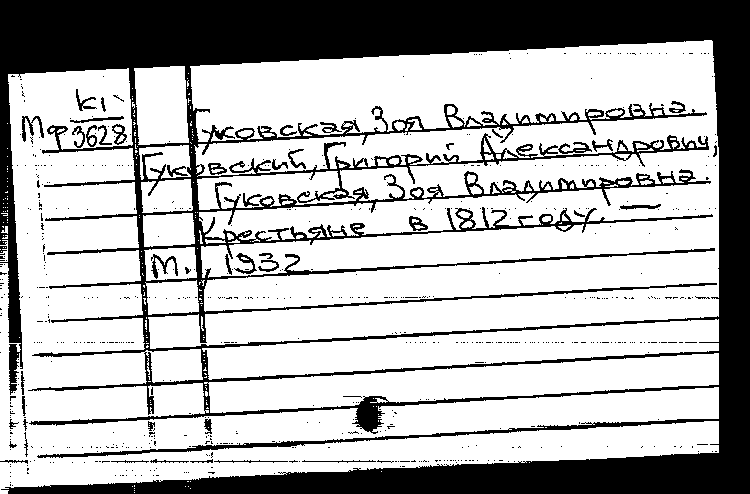 К1
Мф 3628
Гуковская, Зоя Владимировна.
Гуковский, Григорий Александрович,
Гуковская, Зоя Владимировна.
Крестьяне в 1812 году. —
М., 1932